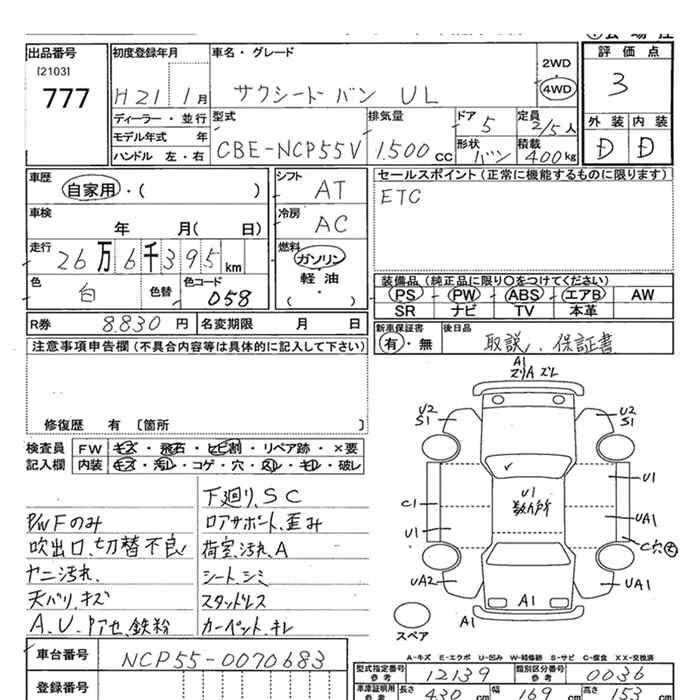 出品番号
[2103]
777
初度登録年月
H21 1月
ディーラー・並行
モデル年式 年
ハンドル 左・右
車名・グレード
サクシード バン UL
2WD
4WD
評価点
3
外装 内装
D D
型式
CBE-NCP55V
排気量
1,500 CC
ドア 5
形状 バン
定員 2/5人
積載 400kg
車歴
自家用・( )
車検
年 月( 日)
走行
26万6千395km
色
白
色替
色コード
058
R券 8,830 円
名変期限 月 日
シフト
AT
冷房
AC
燃料
ガソリン
軽油
( ・ )
セールスポイント(正常に機能するものに限ります)
ETC
装備品(純正品に限り○をつけてください)
PS PW ABS エアB AW
SR ナビ TV 本革
新車保証書
有・無
後日品
取説、保証書
注意事項申告欄(不具合内容等は具体的に記入して下さい)
修復歴 有 [箇所 ]
検査員
記入欄
FW キズ・飛石・ヒビ割・リペア跡・×要
内装 キズ・汚レ・コゲ・穴・スレ・キレ・破レ
下廻り、SC
P/WFのみ
ロアサポート、歪み
吹出口、切替不良
荷室、汚れ、A
ヤニ汚れ、
シート、シミ
天バリ、キズ
スタッドレス
A、U、鉄粉
カーペット、キレ
A1
U2
S1
U2
S1
C1
U1
U1
数ヵ所
U1
UA1
C穴大
UA2
UA1
A1
A1
スペア
A-キズ E-エクボ U-凹み W-補修跡 S-サビ C-腐食 XX-交換済
車台番号
NCP55-0070683
登録番号
型式指定番号
参考
12139
類別区分番号
参考
0036
車庫証明用
参考
長さ 430 cm
幅 169 cm
高さ 153 cm